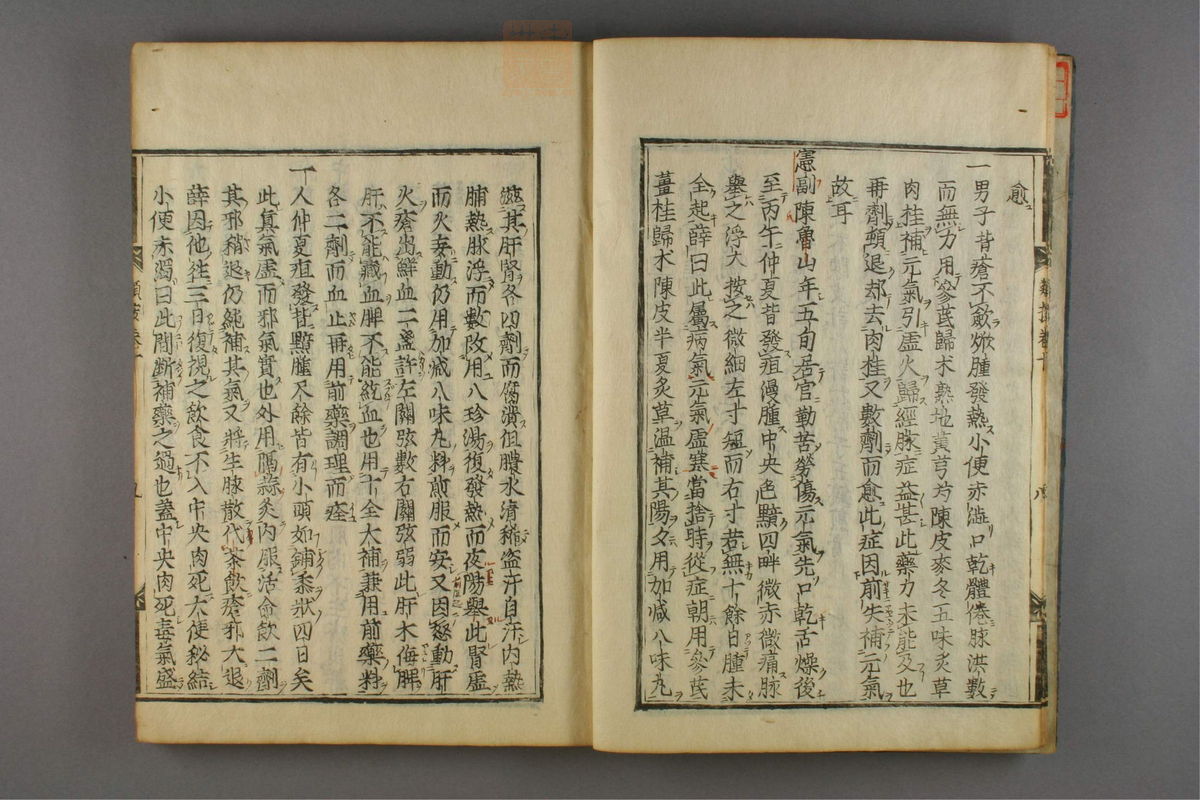 愈
一男子背瘡不斂焮腫發熱小便赤澁口乾體倦脉洪數
而無力用參芪歸朮熟地黃芎芍陳皮麥冬五味炙草
肉桂補元氣引虛火歸經脉症益甚此藥力未能及也
再劑頓退却去肉桂又數劑而愈此症因前失補元氣
故耳
憲副陳魯山年五旬居官勤苦勞傷元氣先口乾舌燥後
至丙午仲夏背發疽漫腫中央色黯四畔微赤微痛脉
舉之浮大按之微細左寸短而右寸若無十餘日腫未
全起薛曰此屬病氣元氣虛寒當捨時從症朝用參芪
薑桂歸朮陳皮半夏炙草溫補其陽夕用加减八味丸
滋其肝腎各四劑而腐潰但膿水清稀盗汗自汗內熱
脯熱脉浮而數改用八珍湯復發熱而夜陽舉此腎虛
而火妄動仍用加减八味丸料煎服而安又因怒動肝
火瘡出鮮血二盞許左關弦數右關弦弱此肝木侮脾
肝不能藏血脾不能統血也用十全大補兼用前藥料
各二劑而血止再用前藥調理而痊
一人仲夏疽發背黯腫尺餘皆有小頭如鋪黍狀四日矣
此真氣虛而邪氣實也外用隔蒜灸內服活命飲二劑
其邪稍退仍純補其氣又將生脉散代茶飲瘡邪大退
薛因他往三日復視之飲食不入中央肉死大便秘結
小便赤濁曰此間斷補藥之過也蓋中央肉死毒氣盛